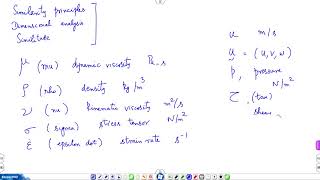 Similarity principles
Dimensional analysis
Similitude
μ (mu) dynamic viscosity Pa-s
ρ (rho) density kg/m³
ν (nu) kinematic viscosity m²/s
σ (sigma) stress tensor N/m²
ε̇ (epsilon dot) strain-rate s⁻¹
u m/s
u = (u, v, w)
p, pressure N/m²
τ (tau)
shear